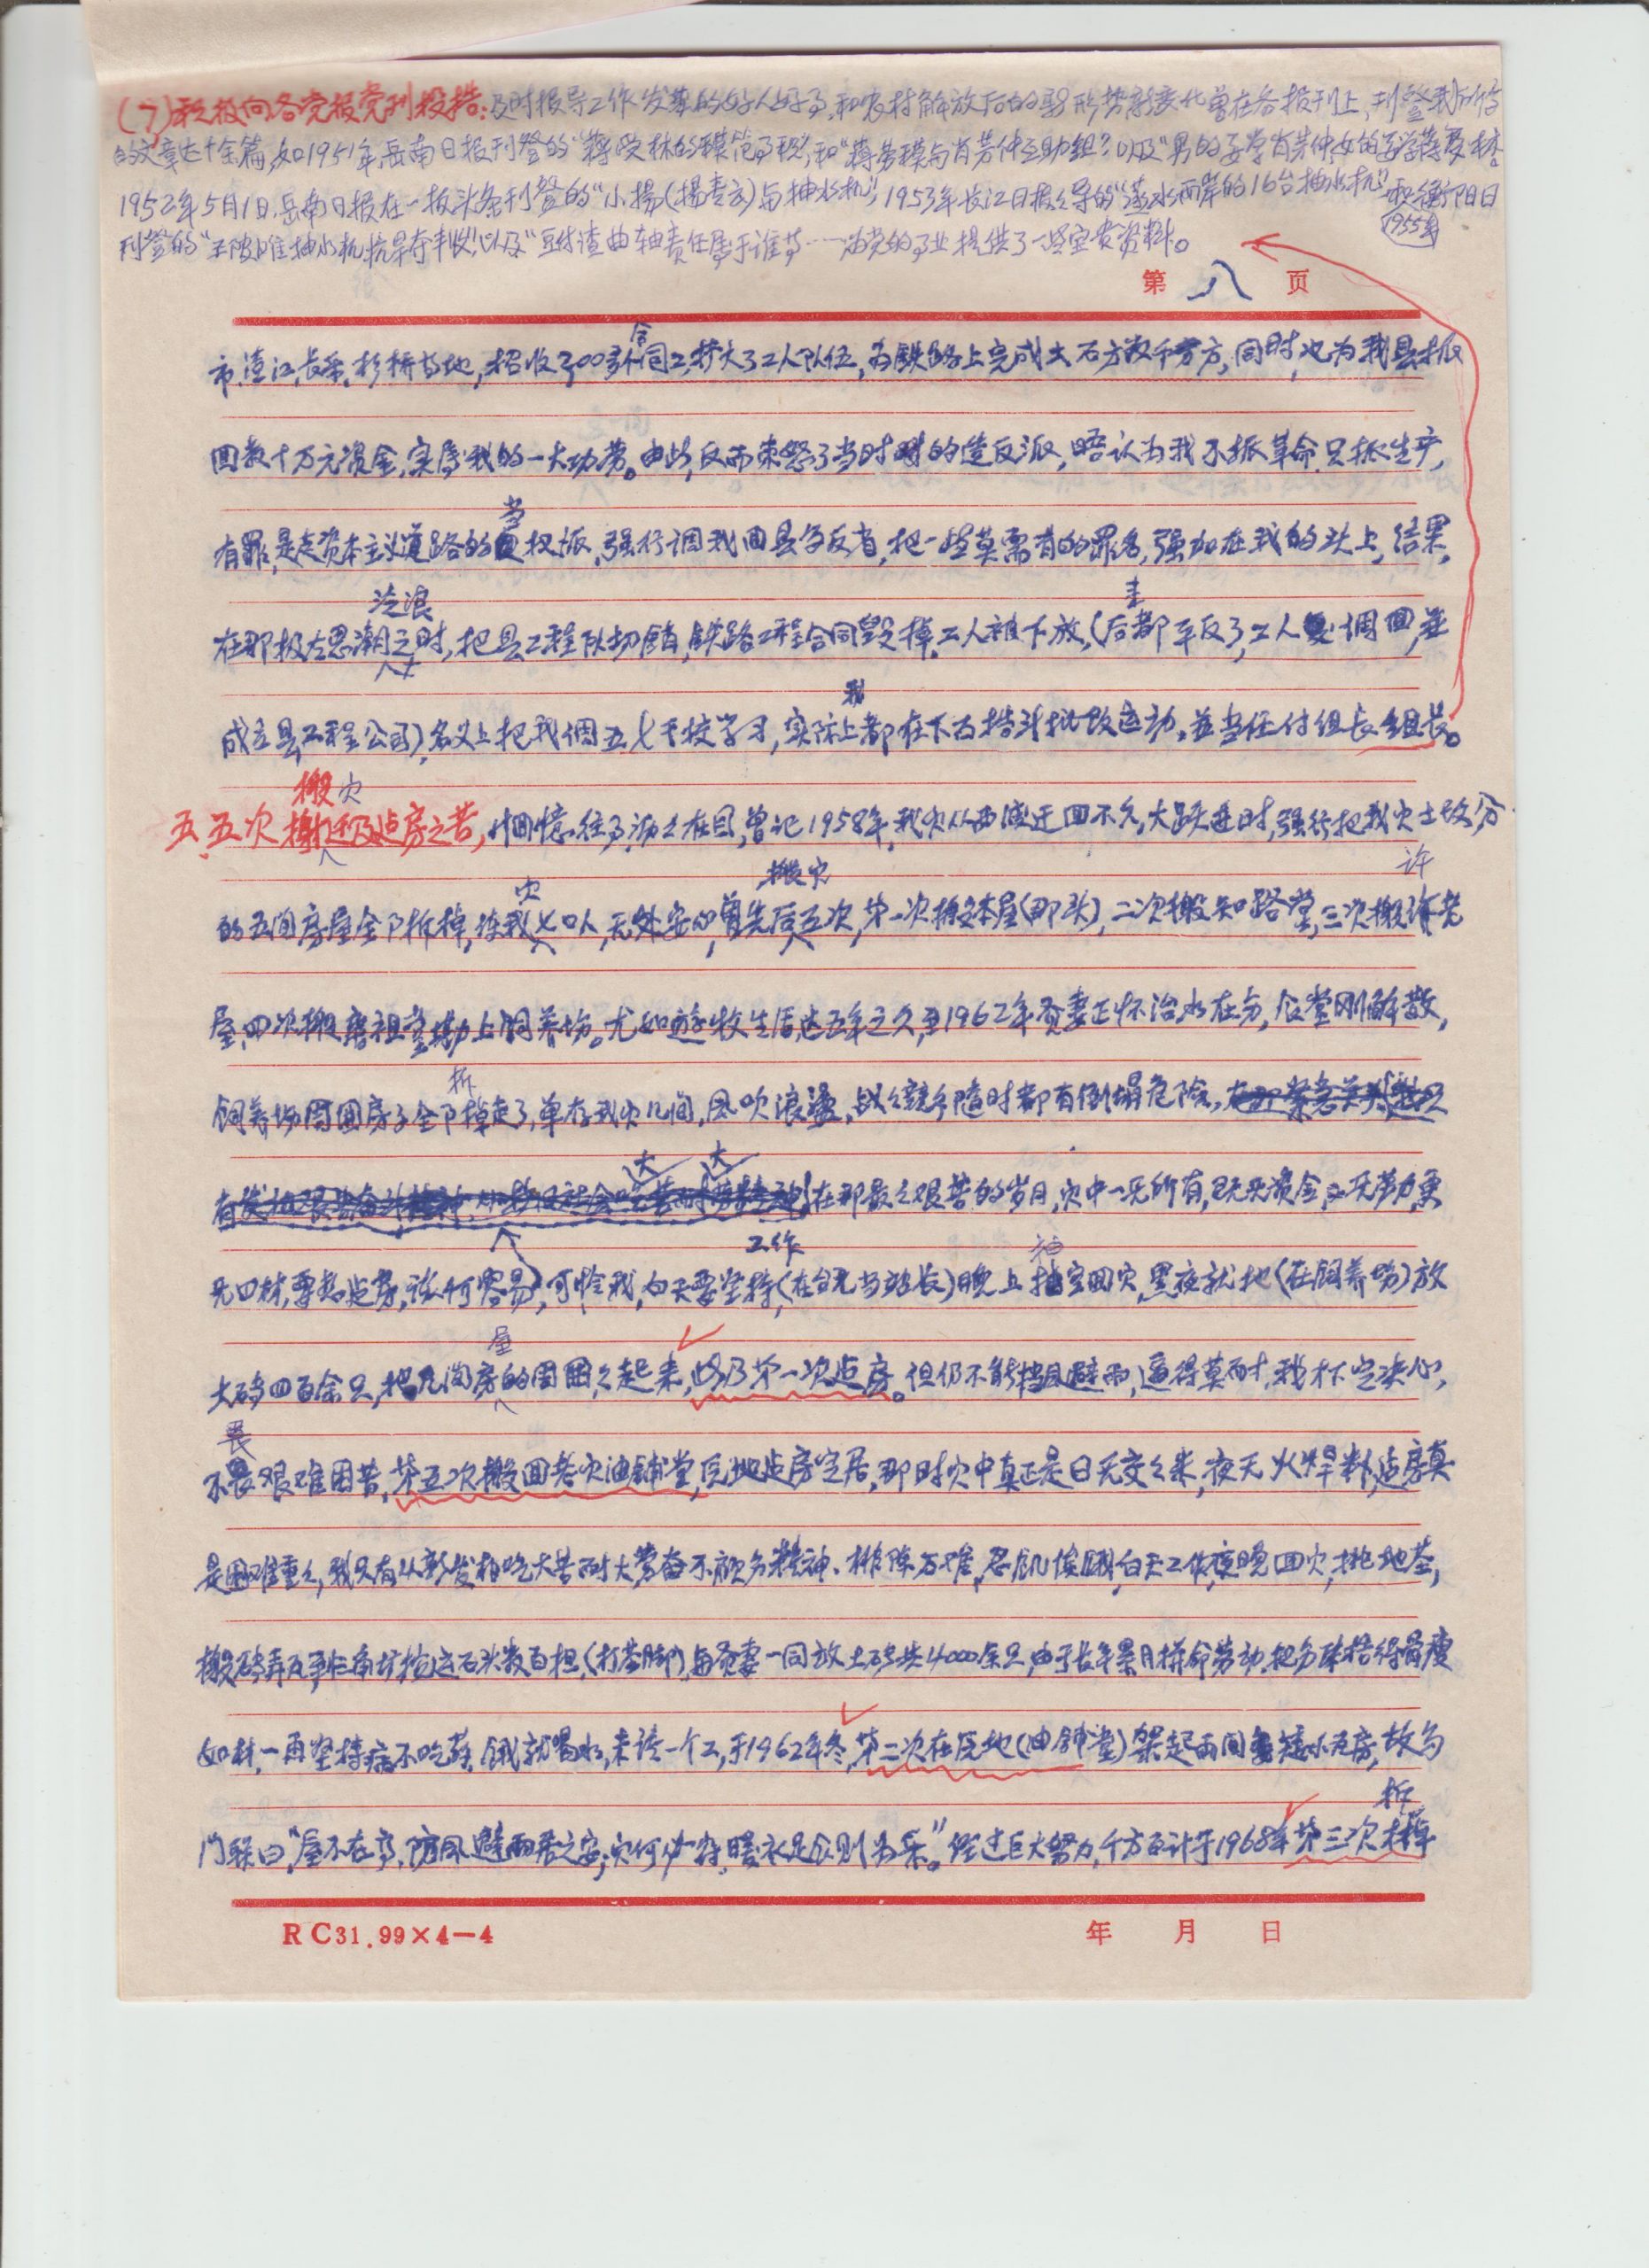 (7)积极向各党报党刊投搞:及时报导工作发 的好人好事,和农村解放后的新形势新变化曾在各报刊上,刊登我所写
的文章达十余篇,如1951年岳南日报刊登的"蒋 林的模范事积",和"蒋劳模与肖芳仲互助组",以及"男的要学肖芳仲,女的要学蒋
1952年5月1日,岳南日报在一板头条刊登的"小揚(揚 )与抽水机",1953年长江日报 导的"蒸水两岸的16台抽水机"和衡阳日
1955年
刊登的" 抽水机抗旱夺丰收"以及" 曲轴责任属于谁等……为党的事业提供了一些宝贵资料。
第八页
市,渣江,长乐,杉桥等地,招收200多个合同工,扩大了工人队伍,为铁路上完成土石方数千万方,同时,也为我县抓
回数十万元资金,实属我的一大功劳。由此,反而柬怒了当时的造反派,晤认为我不抓革命,只抓生产,
有罪,是走资本主义道路的当权派,强行调我回县 ,把一些莫需有的罪名,强加在我的头上,结果,
在那极左思潮泛浪之时,把县工程队切销,铁路工程合同毁掉,工人被下放,(后都平反了,工人 调回,並
成立县工程公司),名义上把我调五七干校学习,实际上我都在下面搞斗批改运动,並当任付组长组长。
五、五次搬灾 及造房之苦,回憶往事,历历在目,曾记1958年,我灾从西渡迁回不久,大跃进时,强行把我灾土改分
的五间房屋全卩拆掉,害我灾七口人,无处安心,曾先后搬灾五次,第一次搬 本屋(那头),二次搬知路堂,三次搬许老
屋,四次搬 祖堂 上饲养场。尤如游牧生活达五年之久,至1962年贤妻正怀治水在身,食堂刚解散,
饲养场周围房子全卩拆掉走了,单存我灾几间,风吹浪盪,战々兢々随时都有倒塌危险,
在那最之艰苦的岁月,灾中一无所有,既无资金,又无劳力,更
无口材,要想造房,谈何容易,可怜我,白天要坚持工作(在 当站长)晚上抽空回灾,黑夜就地(在饲养场)放
大砖四百余只,把几间房屋的周围 起来,此乃第一次造房。但仍不能挡风避雨,逼得莫耐,我才下定决心,
不畏艰难困苦,第五次搬回老灾油铺堂,原地造房定居,那时灾中真正是日无交々米,夜无火焊料,造房真
是困难重々,我只有从新发扬吃大苦耐大劳奋不顾身精神、排除万难,忍饥 饿,白天工作,夜晚回灾,挑地基,
搬砖弄瓦, 石头数百担,(打基脚),与贤妻一同放土砖共4000余只,由于长年累月拼命劳动,把身体搭得骨瘦
如材,一再坚持病不吃药,饿就喝水,未误一个工,于1962年冬,第二次在原地(油铺堂)架起两间矮小瓦房,故写
门联曰"屋不在高,防风避雨居之安;灾何必 ,暖衣足食则为乐。"经过巨大努力,千方百计于1968年第三次才拆掉
RC31.99×4—4
年 月 日